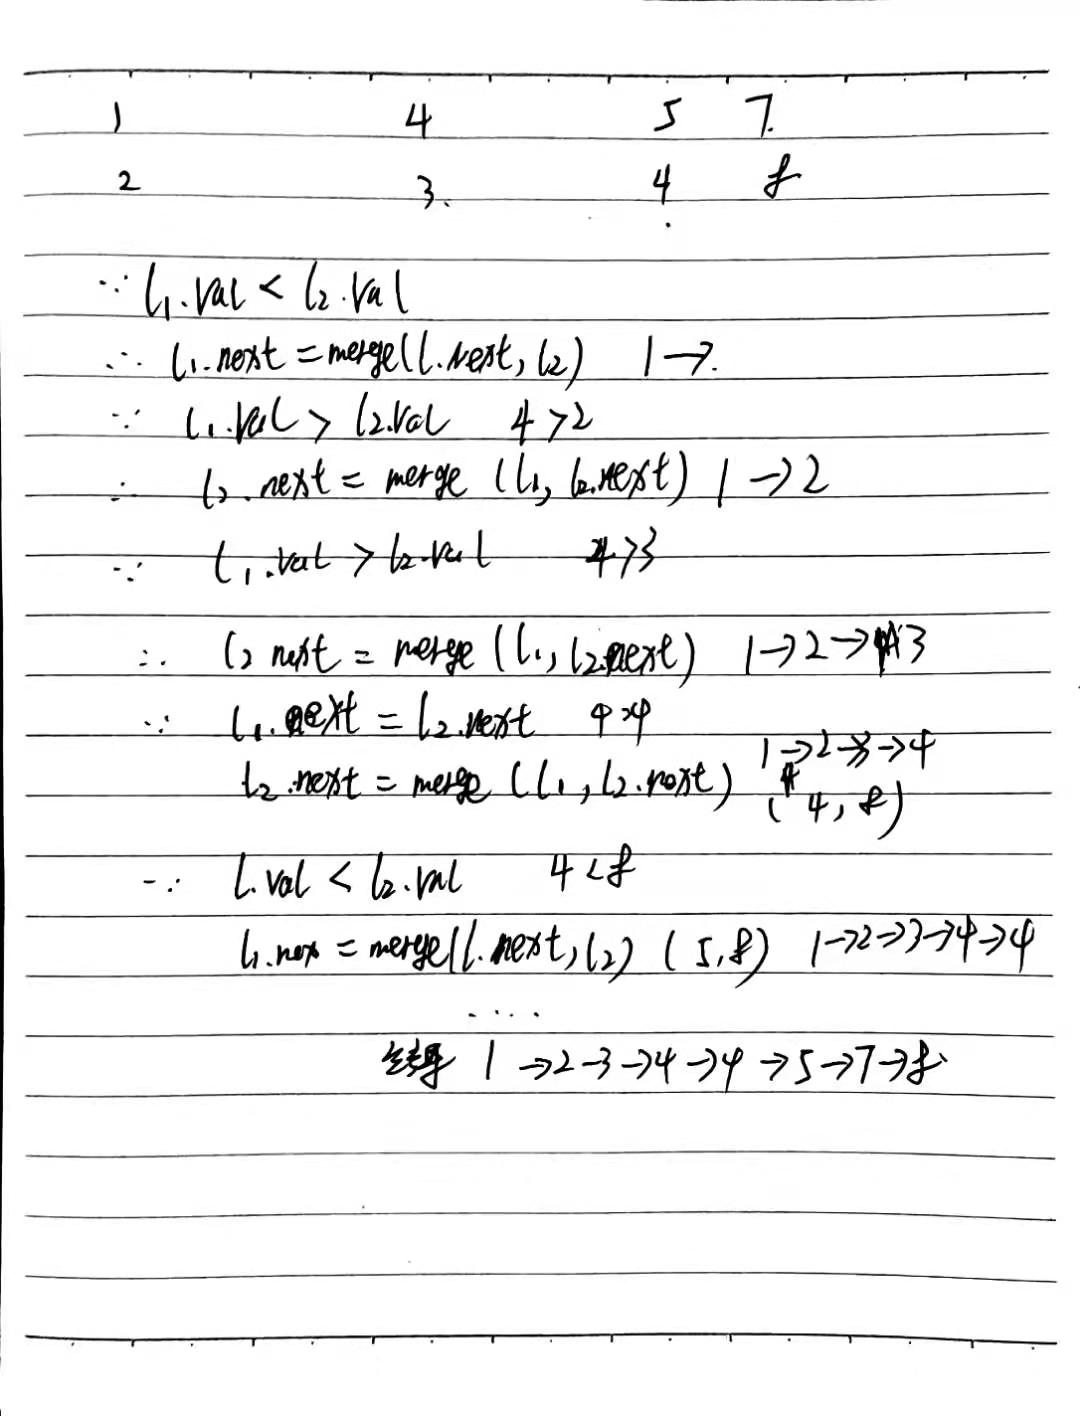 1 4 5 7.
2 3. 4 8
∵ l₁.val < l₂.val
∴ l₁.next = merge(l.next, l₂) 1→.
∵ l₁.val > l₂.val 4>2
∴ l₂.next = merge (l₁, l₂.next) 1→2
∵ l₁.val > l₂.val 4>3
∴ l₂ next = merge (l₁, l₂.next) 1→2→3
∵ l₁.next = l₂.next
1→2→3→4
l₂.next = merge (l₁, l₂.next)
( 4, 8)
∵ l.val < l₂.val 4<8
l₁.nex = merge(l.next, l₂) (5,8) 1→2→3→4→4
....
结果 1→2-3→4→4→5→7→8